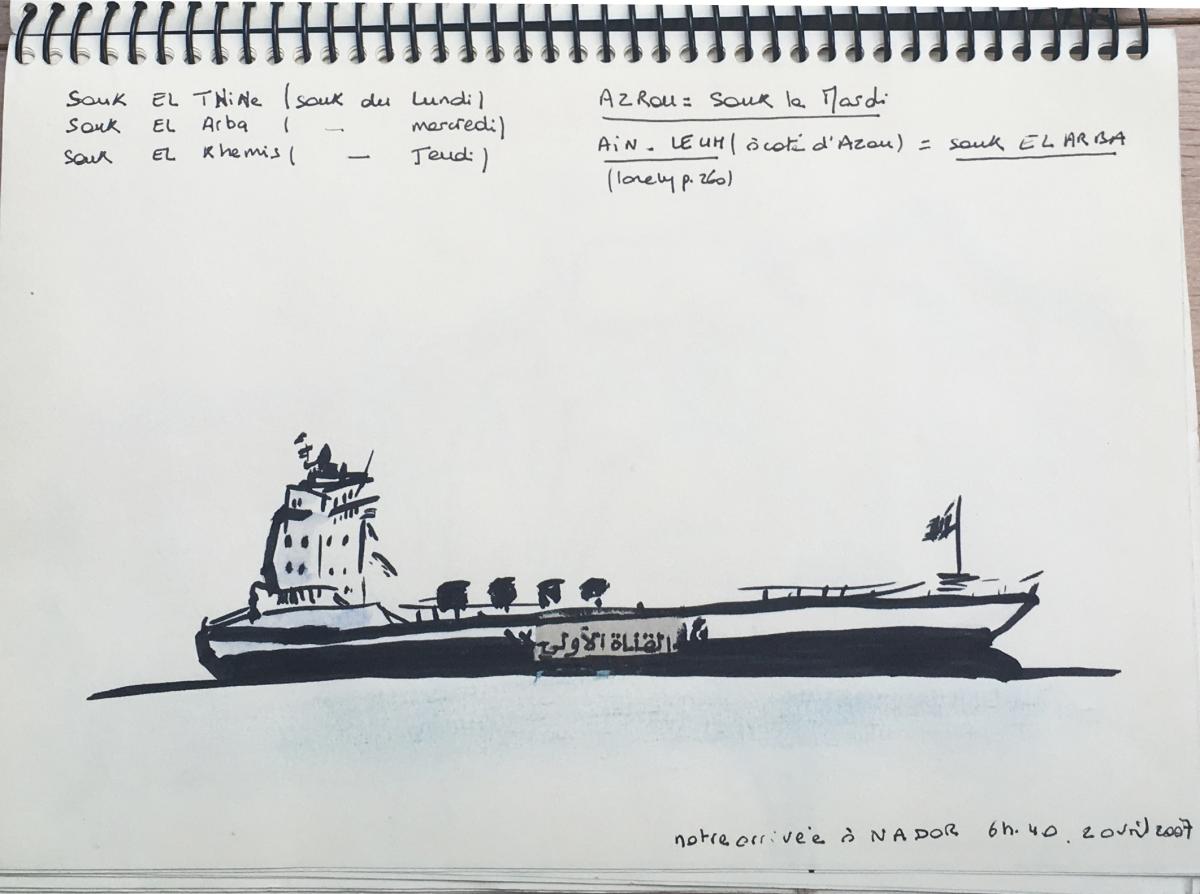 Souk EL TNiNe (souk du Lundi)
Souk EL Arba ( — mercredi)
Souk EL Khemis ( — Jeudi)
AZROU = Souk le Mardi
AïN - LEUH (à coté d'Azrou) = souk EL ARBA
(lonely p. 260)
القناة الأولى
notre arrivée à NADOR 6h.40. 2 avril 2007